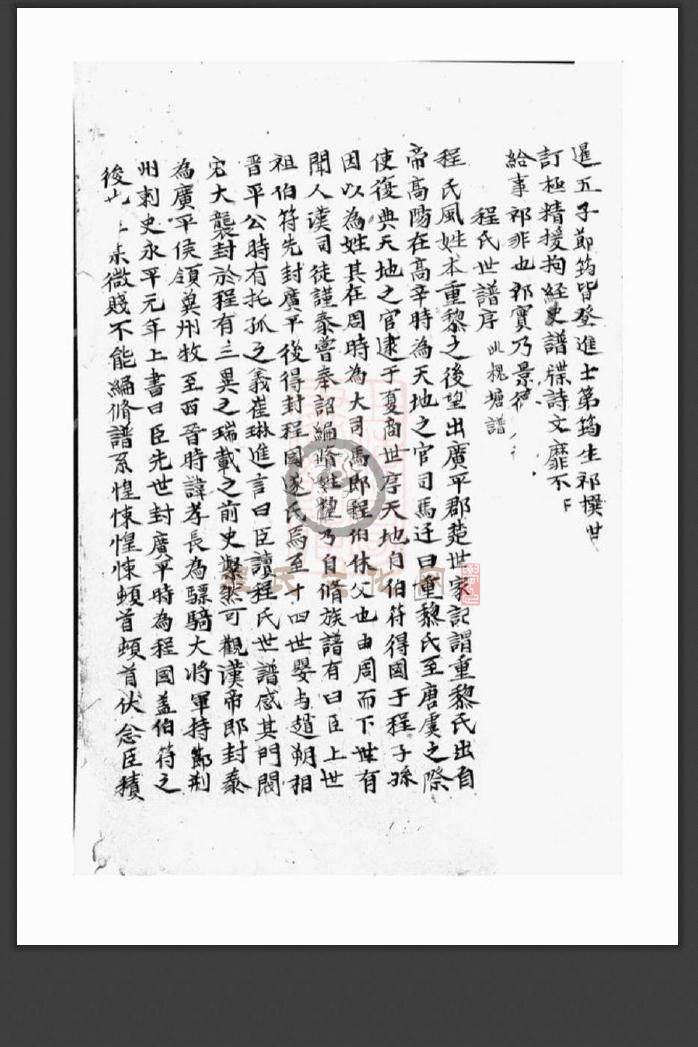 暹五子節筠皆登進士第筠生祁撰世
訂極精援拘經史譜牒詩文靡不
給事祁非也祁實乃景
程氏世譜序 此槐塘譜
程氏風姓本重黎之後望出廣平郡楚世家記謂重黎氏出自
帝高陽在高辛時為天地之官司馬迁曰重黎氏至唐虞之際
使復典天地之官逮于夏商世序天地自伯符得國于程子孫
因以為姓其在周時為大司馬郎程伯休父也由周而下世有
聞人漢司徒謹泰嘗奉詔編脩姓氏乃自脩族譜有曰臣上世
祖伯符先封廣平後得封程國遂氏焉至十四世嬰与趙朔相
晋平公時有托孤之義崔琳進言曰臣讀程氏世譜感其門閥
宏大襲封於程有三異之瑞載之前史燦然可觀漢帝即封泰
為廣平侯領冀州牧至西晉時諱孝長為驃騎大將軍持節荆
州刺史永平元年上書曰臣先世封廣平時為程國蓋伯符之
後也 微賤不能編脩譜系惶悚惶悚頓首頓首伏念臣積